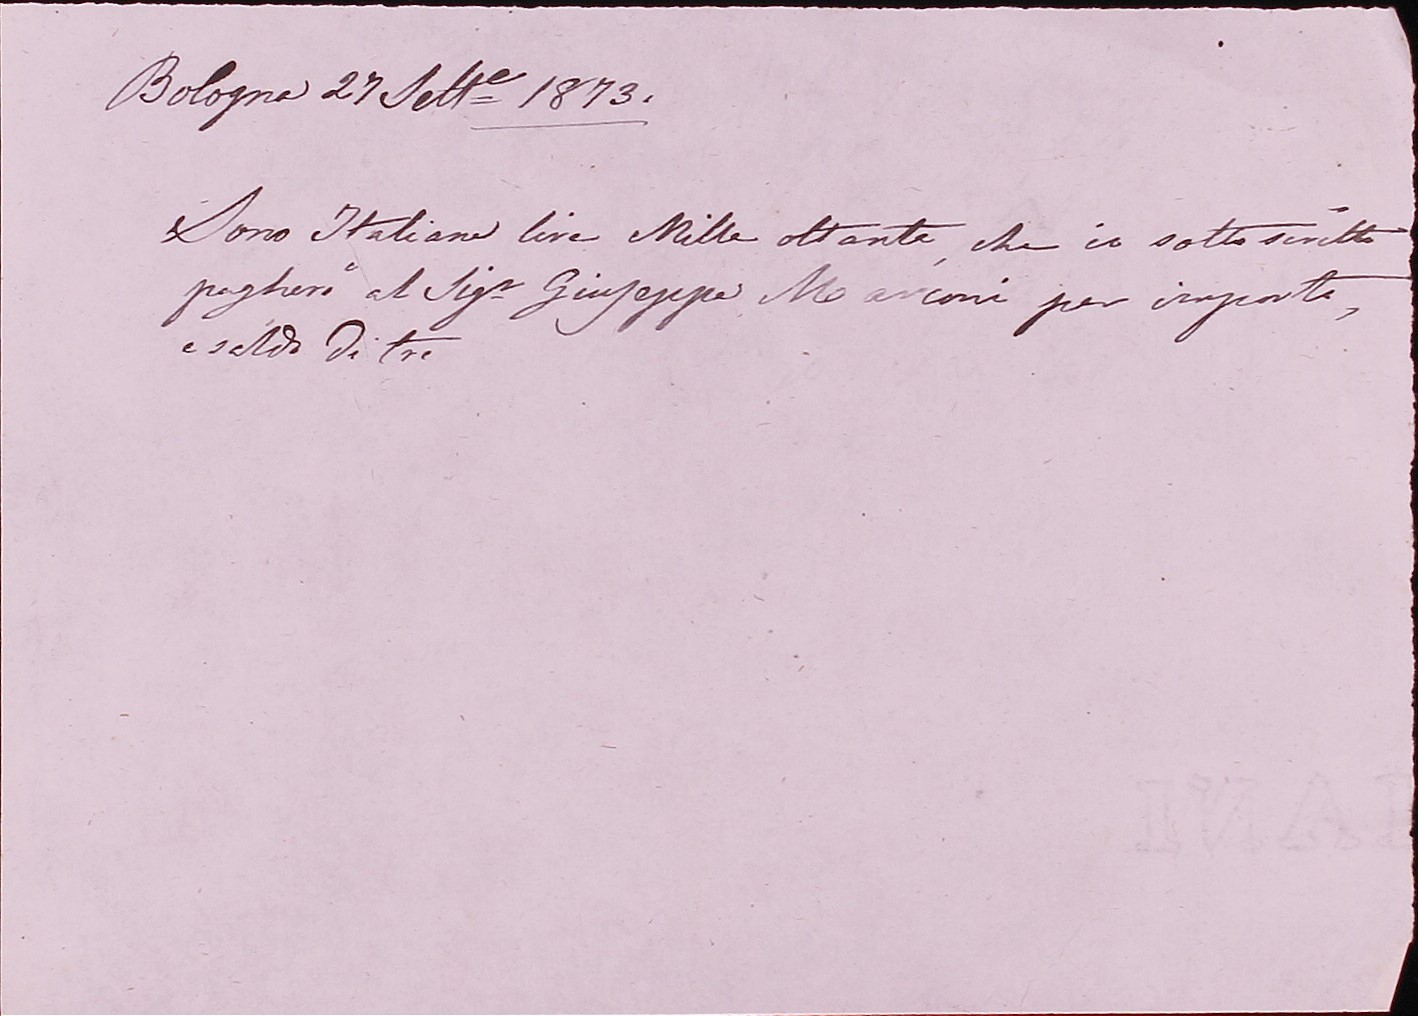 Bologna 27 Sett.e 1873.
Sono Italiane lire Mille ottanta, che io sottoscritto
pagherò al Sig.r Giuseppe Marconi per importo,
e saldo di tre